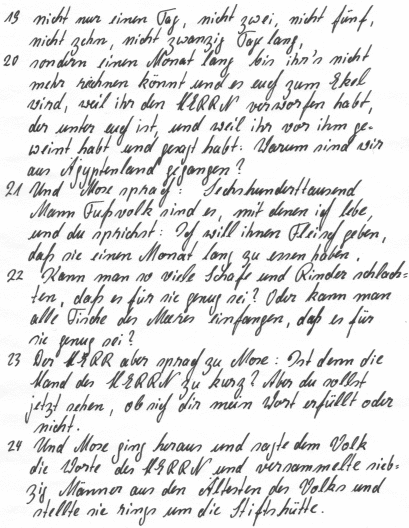 19 nicht nur einen Tag, nicht zwei, nicht fünf,
nicht zehn, nicht zwanzig Tage lang,
20 sondern einen Monat lang bis ihr's nicht
mehr riechen könnt und es euch zum Ekel
wird, weil ihr den HERRN verworfen habt,
der unter euch ist, und weil ihr vor ihm ge-
weint habt und gesagt habt: Warum sind wir
aus Ägyptenland gegangen?
21 Und Mose sprach: Sechshunderttausend
Mann Fußvolk sind es, mit denen ich lebe,
und du sprichst: Ich will ihnen Fleisch geben,
daß sie einen Monat lang zu essen haben.
22 Kann man so viele Schafe und Rinder schlach-
ten, daß es für sie genug sei? Oder kann man
alle Fische des Meeres einfangen, daß es für
sie genug sei?
23 Der HERR aber sprach zu Mose: Ist denn die
Hand des HERRN zu kurz? Aber du sollst
jetzt sehen, ob sich dir mein Wort erfüllt oder
nicht.
24 Und Mose ging heraus und sagte dem Volk
die Worte des HERRN und versammelte sieb-
zig Männer aus den Ältesten des Volks und
stellte sie rings um die Stiftshütte.